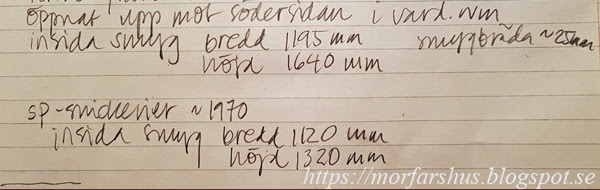 öppnat upp mot södersidan i vard.rum
insida smyg bredd 1195 mm smygbräda ~25mm
höjd 1640 mm
sp-snickerier ~1970
insida smyg bredd 1120 mm
höjd 1320 mm
https://morfarshus.blogspot.se